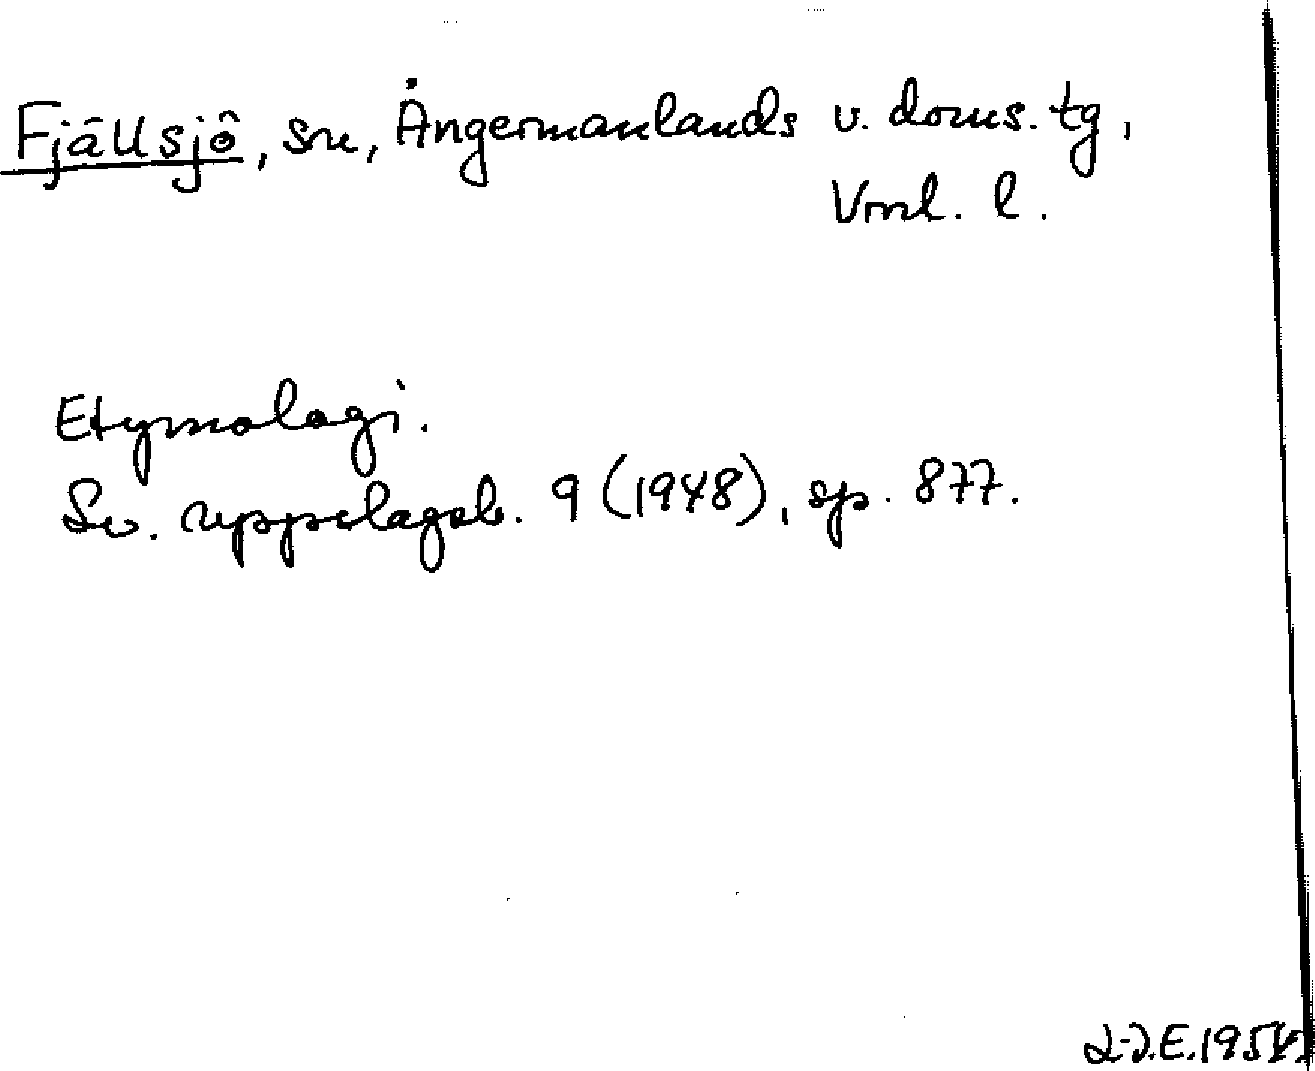 Fjällsjö, sn, Ångermanlands v. doms. tg,
Vnl. l.
Etymologi.
Sv. uppslagsb. 9 (1948), sp. 877.